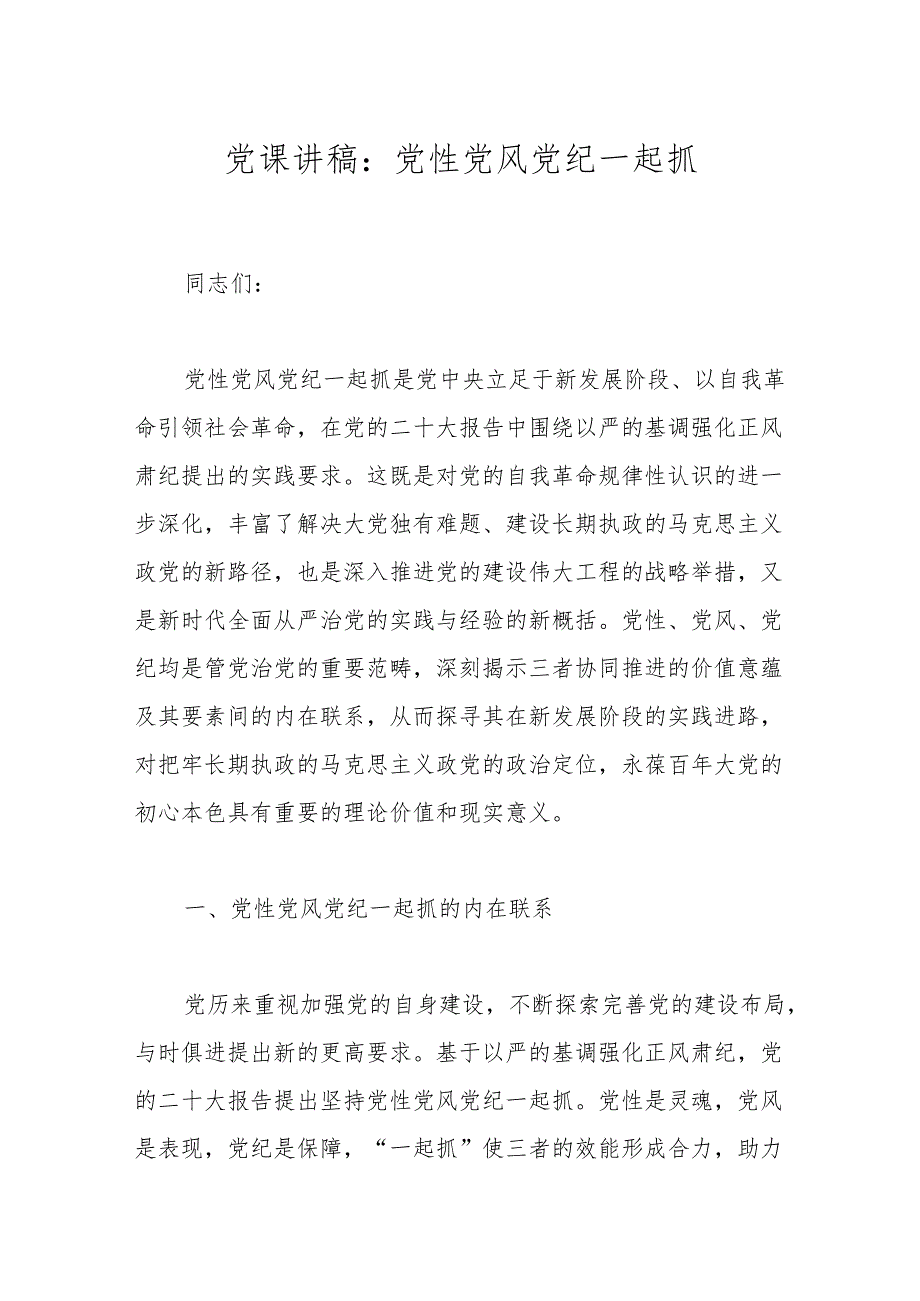 党课讲稿：党性党风党纪一起抓
同志们：
党性党风党纪一起抓是党中央立足于新发展阶段、以自我革
命引领社会革命，在党的二十大报告中围绕以严的基调强化正风
肃纪提出的实践要求。这既是对党的自我革命规律性认识的进一
步深化，丰富了解决大党独有难题、建设长期执政的马克思主义
政党的新路径，也是深入推进党的建设伟大工程的战略举措，又
是新时代全面从严治党的实践与经验的新概括。党性、党风、党
纪均是管党治党的重要范畴，深刻揭示三者协同推进的价值意蕴
及其要素间的内在联系，从而探寻其在新发展阶段的实践进路，
对把牢长期执政的马克思主义政党的政治定位，永葆百年大党的
初心本色具有重要的理论价值和现实意义。
一、党性党风党纪一起抓的内在联系
党历来重视加强党的自身建设，不断探索完善党的建设布局，
与时俱进提出新的更高要求。基于以严的基调强化正风肃纪，党
的二十大报告提出坚持党性党风党纪一起抓。党性是灵魂，党风
是表现，党纪是保障，“一起抓”使三者的效能形成合力，助力